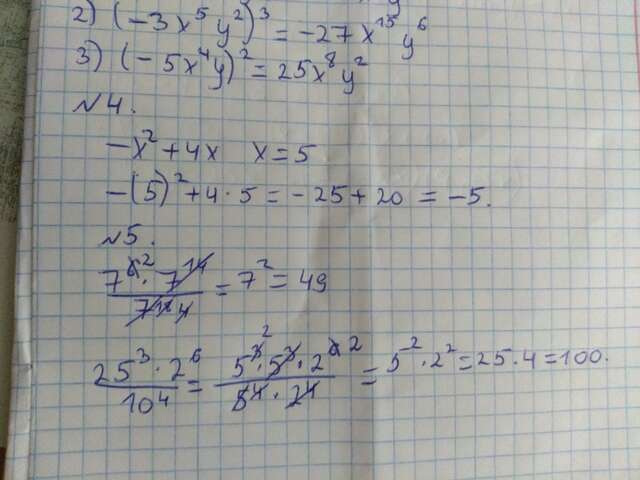 2) (-3x⁵y²)³ = -27x¹⁵y⁶
3) (-5x⁴y)² = 25x⁸y²
№4.
-x²+4x x=5
-(5)²+4·5 = -25+20 = -5.
№5.
7² · 7¹⁴ / 7¹⁴ = 7² = 49
25³ · 2⁶ / 10⁴ = 5³² · 5³ · 2⁶² / 5⁴ · 2⁴ = 5² · 2² = 25·4 = 100.